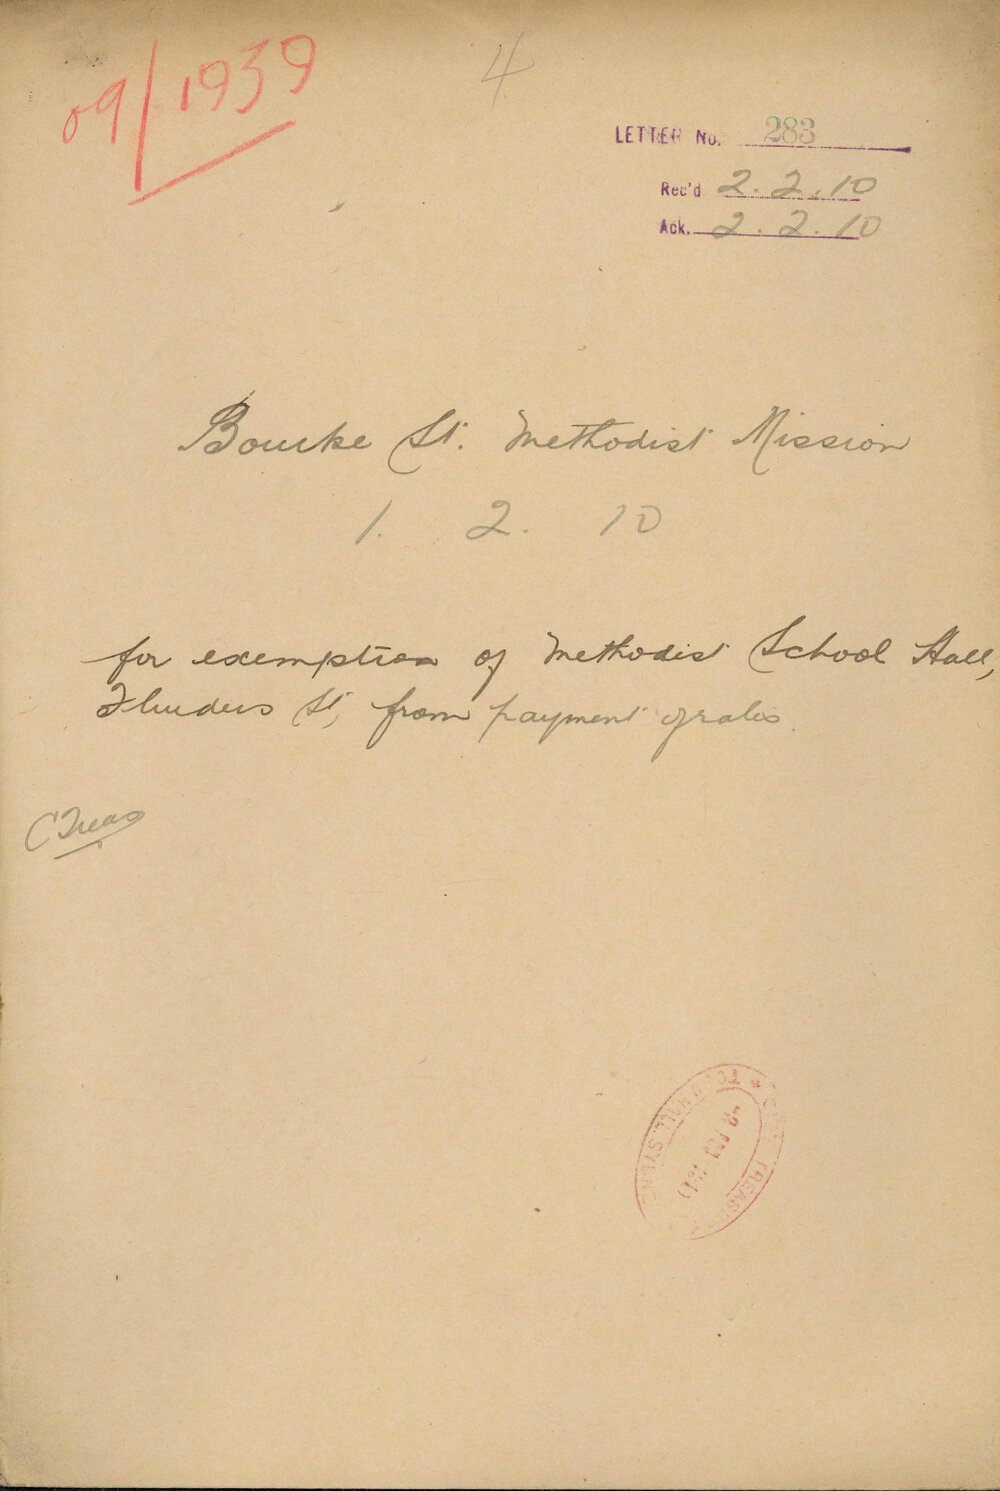 09/1939
4
LETTER No. 283
Rec'd 2.2.10
Ack. 2.2.10
Bourke St. Methodist Mission
1. 2. 10
for exemption of Methodist School Hall,
Flinders St, from payment of rates.
C Treas
TOWN HALL, SYDNEY
CITY TREASURER
FEB